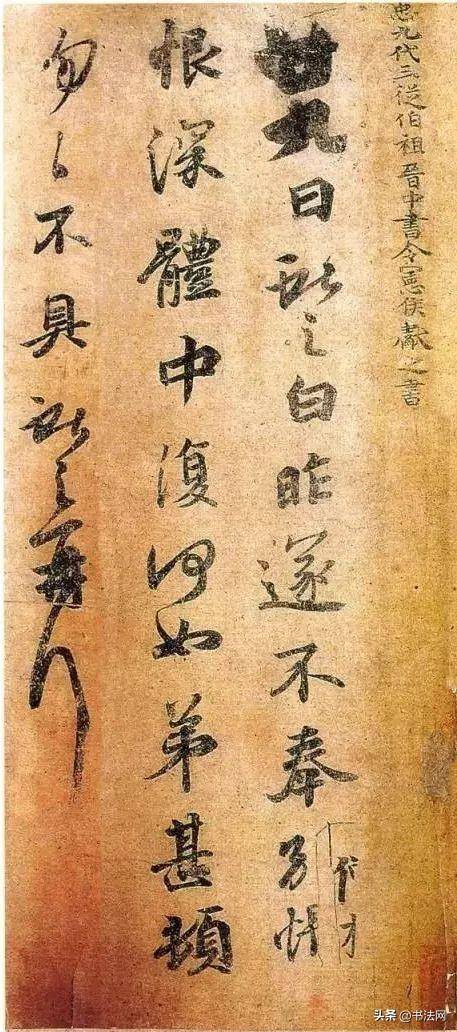 九代三從伯祖晉中書令憲侯獻之書
廿九日獻之白昨遂不奉別悵
恨深體中復何如弟甚頓
匆々不具獻之再拜
头条 @书法网